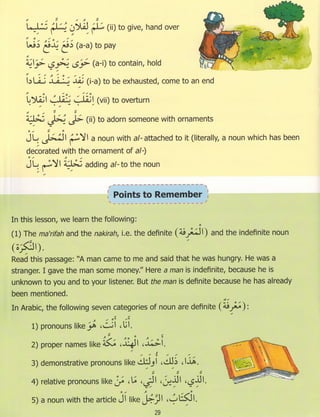 (ii) to give, hand over
دَفَعَ يَدْفَعُ دَفْعًا (a-a) to pay
حَوَى يَحْوِي (a-i) to contain, hold
نَفِدَ يَنْفَدُ نَفَادًا (i-a) to be exhausted, come to an end
اِنْقَلَبَ يَنْقَلِبُ اِنْقِلَابًا (vii) to overturn
حَلَّى يُحَلِّي تَحْلِيَةً (ii) to adorn someone with ornaments
الاسْمُ المُحَلَّى بِأَلْ a noun with al- attached to it (literally, a noun which has been
decorated with the ornament of al-)
تَحْلِيَةُ الاسْمِ بِأَلْ adding al- to the noun
Points to Remember
In this lesson, we learn the following:
(1) The ma'rifah and the nakirah, i.e. the definite (المَعْرِفَة) and the indefinite noun
(النَّكِرَة).
Read this passage: "A man came to me and said that he was hungry. He was a
stranger. I gave the man some money." Here a man is indefinite, because he is
unknown to you and to your listener. But the man is definite because he has already
been mentioned.
In Arabic, the following seven categories of noun are definite (مَعْرِفَة):
1) pronouns like أَنَا، أَنْتَ، هُوَ.
2) proper names like أَحْمَدُ، الهِنْدُ، مَكَّةُ.
3) demonstrative pronouns like هَذَا، ذَلِكَ، أُولَئِكَ.
4) relative pronouns like الَّذِي، الَّذِينَ، الَّتِي، مَا، مَنْ.
5) a noun with the article ال like الكِتَابُ، الرَّجُلُ.
29